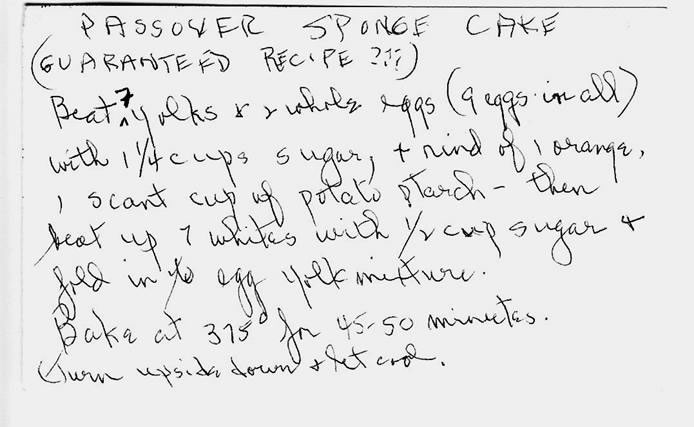 PASSOVER SPONGE CAKE
(GUARANTEED RECIPE ?!!)
Beat 7 yolks & 2 whole eggs (9 eggs in all)
with 1 1/4 cups sugar, + rind of 1 orange,
1 scant cup of potato starch - then
beat up 7 whites with 1/2 cup sugar +
fold in to egg yolk mixture.
Bake at 375° for 45-50 minutes.
Turn upside down & let cool.